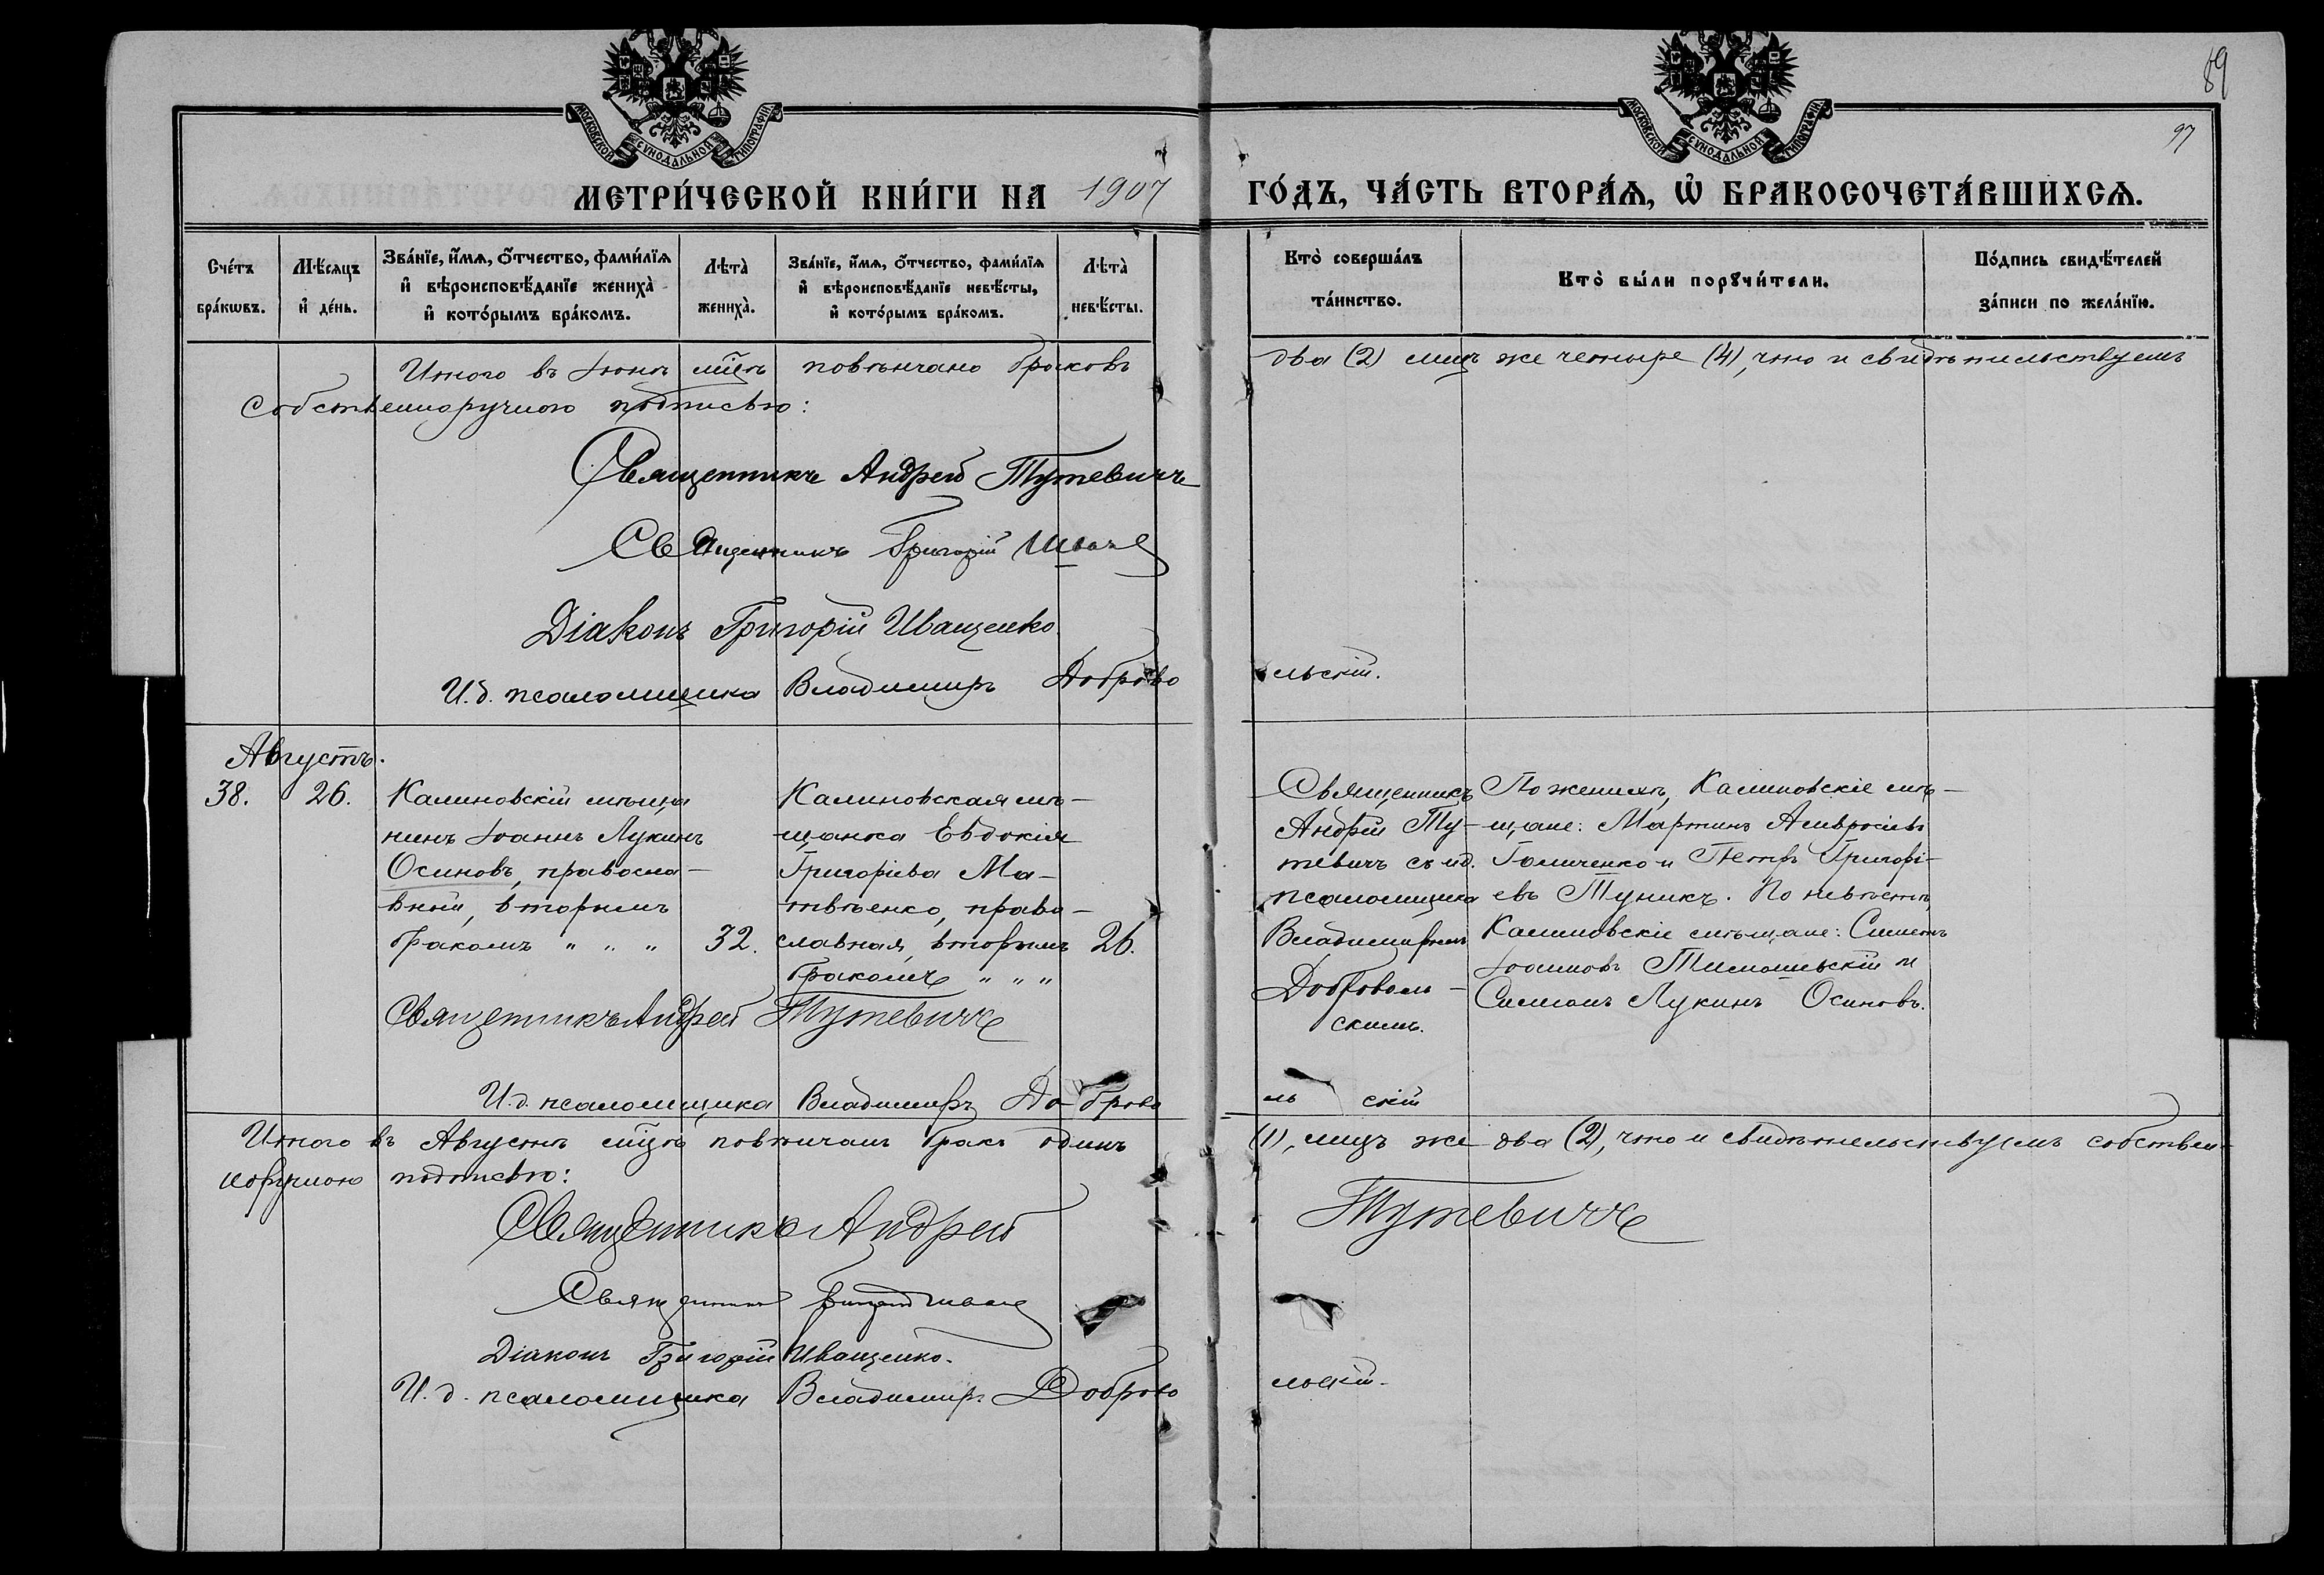 89
97
МОСКОВСКОЙ СѴНОДАЛЬНОЙ ТИПОГРАФІИ
МОСКОВСКОЙ СѴНОДАЛЬНОЙ ТИПОГРАФІИ
МЕТРИ́ЧЕСКОЙ КНИ́ГИ НА 1907 ГО́ДЪ, ЧА́СТЬ ВТОРА́Ѧ, Ѡ҆ БРАКОСОЧЕТА́ВШИХСѦ.
Сче́тъ бра́кѡвъ.
Мѣ́сяцъ и҆ де́нь.
Зва́нїе, и҆́мѧ, ѻ҆́тчество, фами́лїѧ и҆ вѣроисповѣ́данїе жениха̀ и҆ кото́рымъ бра́комъ.
Лѣта̀ жениха̀.
Зва́нїе, и҆́мѧ, ѻ҆́тчество, фами́лїѧ и҆ вѣроисповѣ́данїе невѣ́сты, и҆ кото́рымъ бра́комъ.
Лѣта̀ невѣ́сты.
Кто̀ соверша́лъ та́инство.
Кто̀ бы́ли порꙋчи́тели.
По́дпись свидѣ́телей за́писи по жела́нїю.
Итого въ Іюнѣ мцѣ повѣнчано браковъ два (2) лицъ же четыре (4), что и свидѣтельствуемъ
собственноручною подписью:
Священникъ Андрей Тутевичъ
Священникъ Григорій Швачъ
Діаконъ Григорій Иващенко.
И.д. псаломщика Владимиръ Добровольскій.
Августъ.
38. 26.
Калиновскій мѣща
нинъ Іоаннъ Лукинъ
Осиновъ, правосла-
вный, вторымъ
бракомъ " " " 32.
Калиновская мѣ-
щанка Евдокія
Григоріева Ма-
твѣенко, право-
славная, вторымъ 26.
бракомъ " " "
Священникъ
Андрей Ту-
тевичъ съ и.д.
псаломщика
Владимиромъ
Доброволь-
скимъ.
По женихѣ, Калиновскіе мѣ-
щане: Мартинъ Амвросіевъ
Гомиченко и Петръ Григорі-
евъ Туникъ. По невѣстѣ,
Калиновскіе мѣщане: Симеонъ
Іоанновъ Тимошевскій и
Симеонъ Лукинъ Осиновъ.
Священникъ Андрей Тутевичъ
И.д. псаломщика Владимиръ Добровольскій
Итого въ Августѣ мцѣ повѣнчанъ бракъ одинъ (1), лицъ же два (2), что и свидѣтельствуемъ собствен-
норучною подписью:
Священникъ Андрей Тутевичъ
Священникъ Григорій Швачъ
Діаконъ Григорій Иващенко.
И.д. псаломщика Владимиръ Добровольскій.